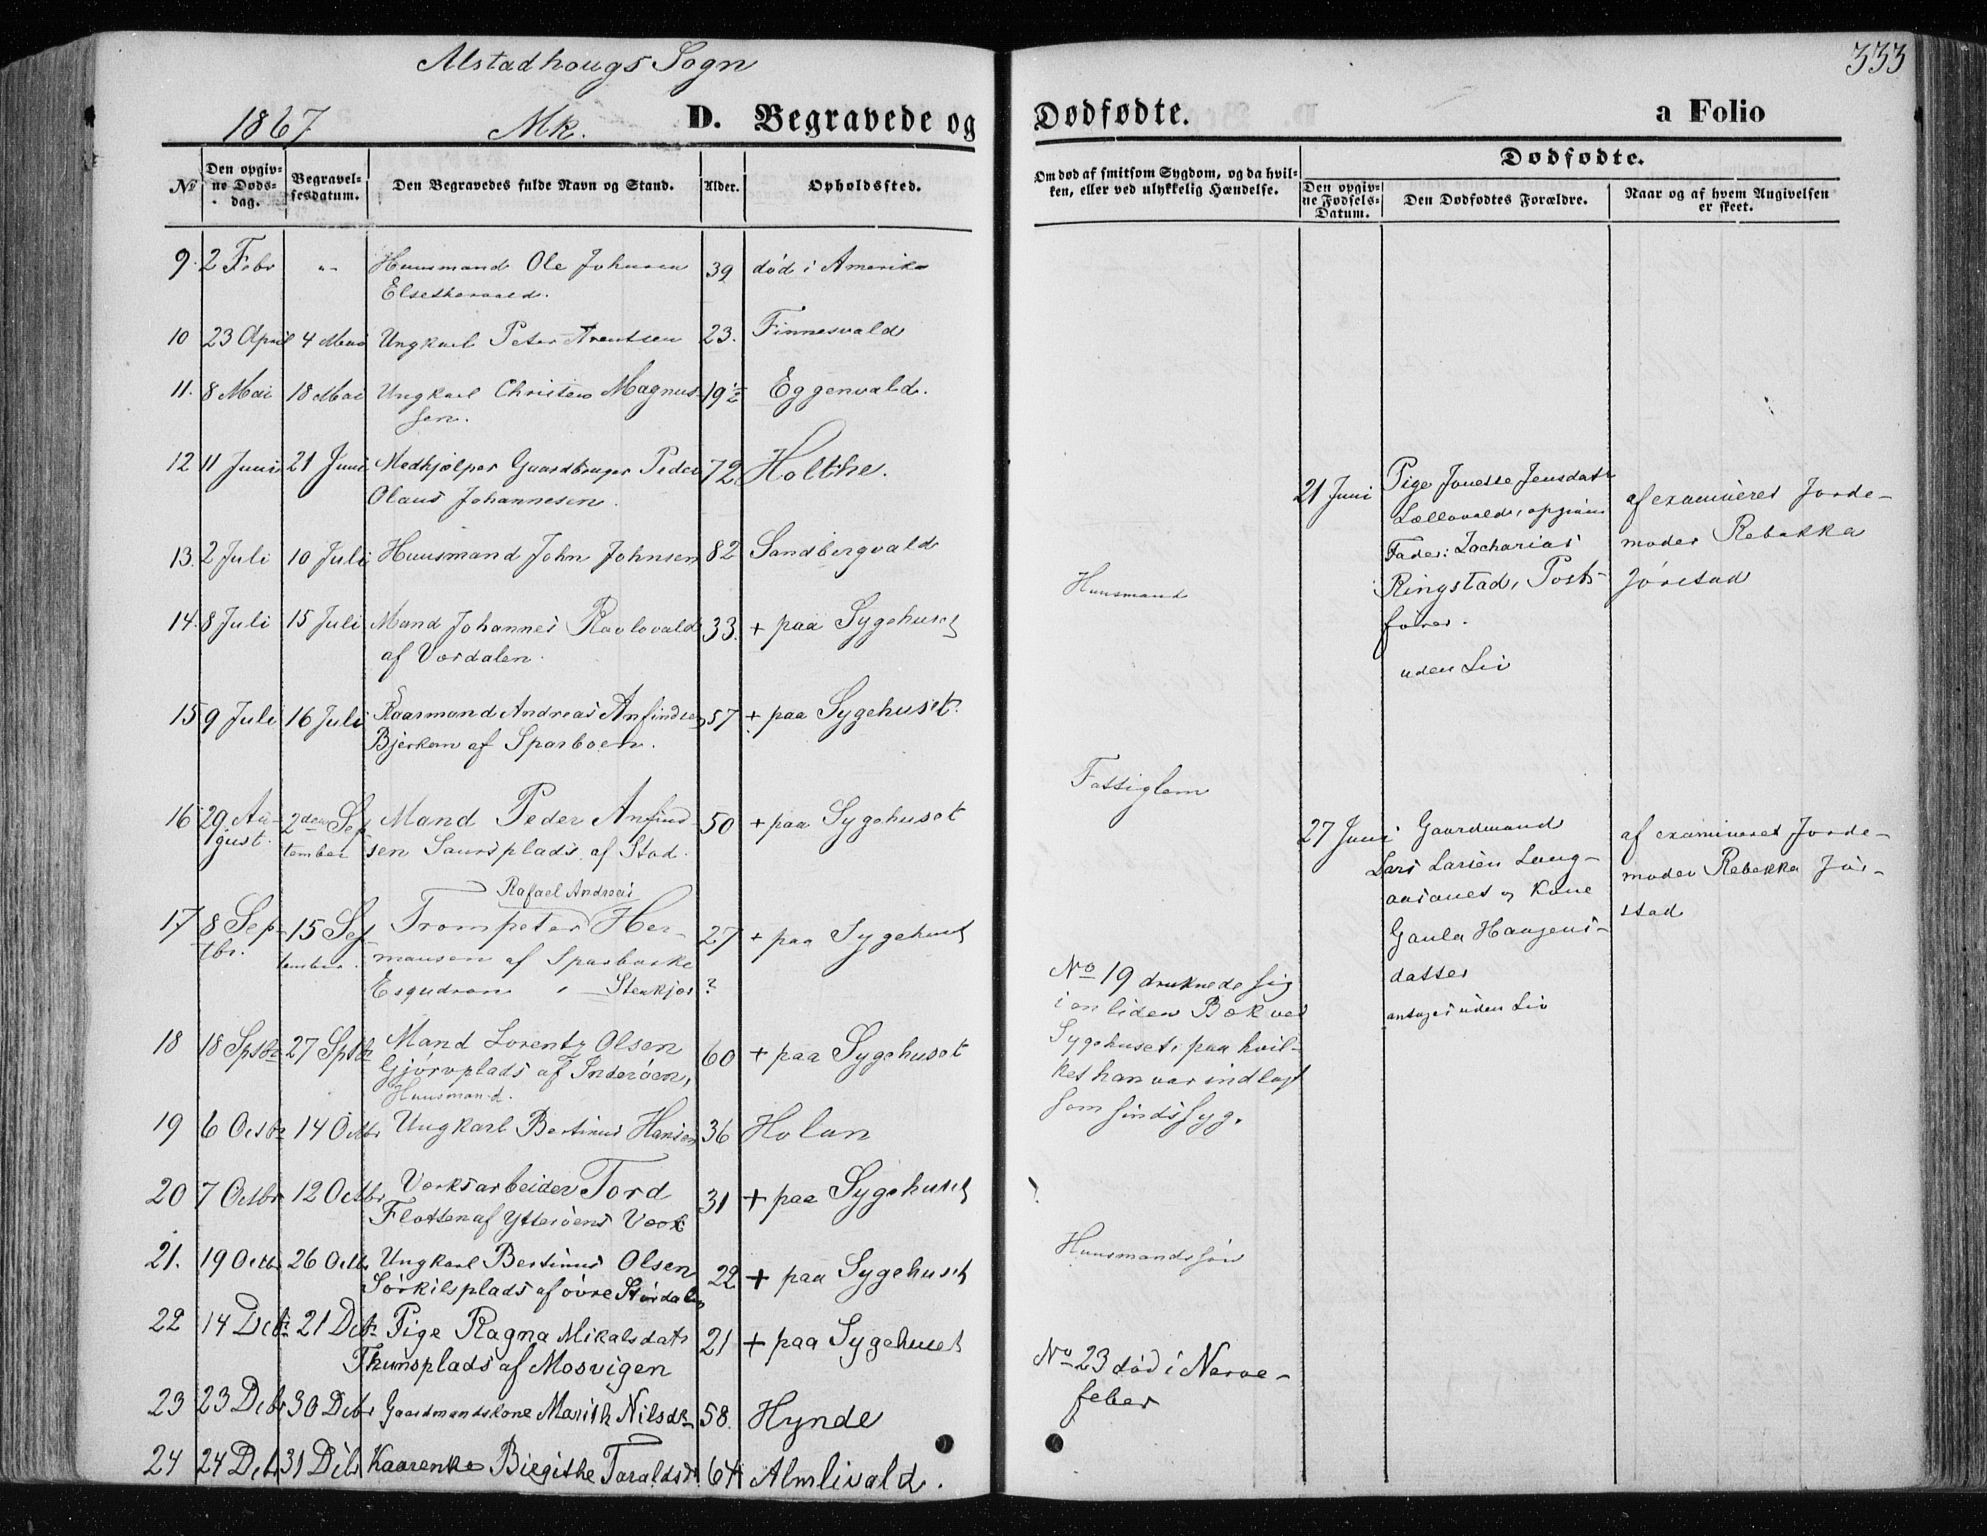 Alstadhougs Sogn
333
1867 Mk. D. Begravede og Dødfødte. a Folio
No
Den opgivne Døds-dag.
Begravel-sesdatum.
Den Begravedes fulde Navn og Stand.
Alder.
Opholdssted.
Om død af smitsom Sygdom, og da hvil-
ken, eller ved ulykkelig Hændelse.
Dødfødte.
Den opgiv-ne Fødsels-Datum.
Den Dødfødtes Forældre.
Naar og af hvem Angivelsen
er skeet.
9. 2 Febr „ Huusmand Ole Johnsen 39 død i Amerika
10 23 April 4 Mai Ungkarl Peter Arentsen 23. Finnesvald
11. 8 Mai 18 Mai Ungkarl Christen Magnus- 19½ Eggenvald.
sen.
12 11 Juni 21 Juni Medhjælper Gaardbruger Peder 72 Holthe.
Olaus Johannesen.
13. 2 Juli 10 Juli Huusmand John Johnsen 82 Sandbergvald
14. 8 Juli 15 Juli Mand Johannes Ravlovald 33. + paa Sygehuset
af Værdalen.
15 9 Juli 16 Juli Kaarmand Andreas Anfindsen 57 + paa Sygehuset.
Bjerkem af Sparboen.
16 29 Au- 2den Sep Mand Peder Anfind 50 + paa Sygehuset
gust. tember sen Saursplads af Stod.
Rafael Andreas
17 8 Sep- 15 Sep Trompeter Her- 27 + paa Sygehuset
tbr. tember. mansen af Sparboske
Esqudron Stenkjær ?
18 18 Sptbr 27 Sptbr Mand Lorentz Olsen 60 + paa Sygehuset
Gjørvplads af Inderøen,
Huusmand.
19 6 Octbr 14 Octbr Ungkarl Bertinus Hansen 36 Holan
20 7 Octbr 12 Octbr Værksarbeider Tord 31 + paa Sygehuset
Flotten af Ytterøens Værk
21. 19 Octbr 26 Octbr Ungkarl Bertinus Olsen 22 + paa Sygehuset
Sørkilsplads af øvre Størdalen
22 14 Debr 21 Debr Pige Ragna Mikalsdatr 21 + paa Sygehuset
Thunsplads af Mosvigen
23 23 Debr 30 Debr Gaardmandskone Marith Nilsdr 58. Hynde
24 24 Debr 31 Debr Kaarenke Birgithe Taraldsdr 64 Almlivald.
Huusmand
Fattiglem
No 19 druknede sig
i en liden Bæk ved
Sygehuset, paa hvil-
ket han var indlagt
som sindssyg.
Huusmandssøn
No 23 død i Nerve-
feber
21 Juni Pige Jonette Jensdatr
opgiven
Fader: Zacharias
Ringstad, Post-
fører.
uden Liv
af examineret Jorde-
moder Rebekka
Jørstad
27 Juni Gaardmand
Lars Larsen Lang-
aasanet og Kone
Gaula Haagens-
datter
uden Liv
af examineret Jorde-
moder Rebekka Jør-
stad